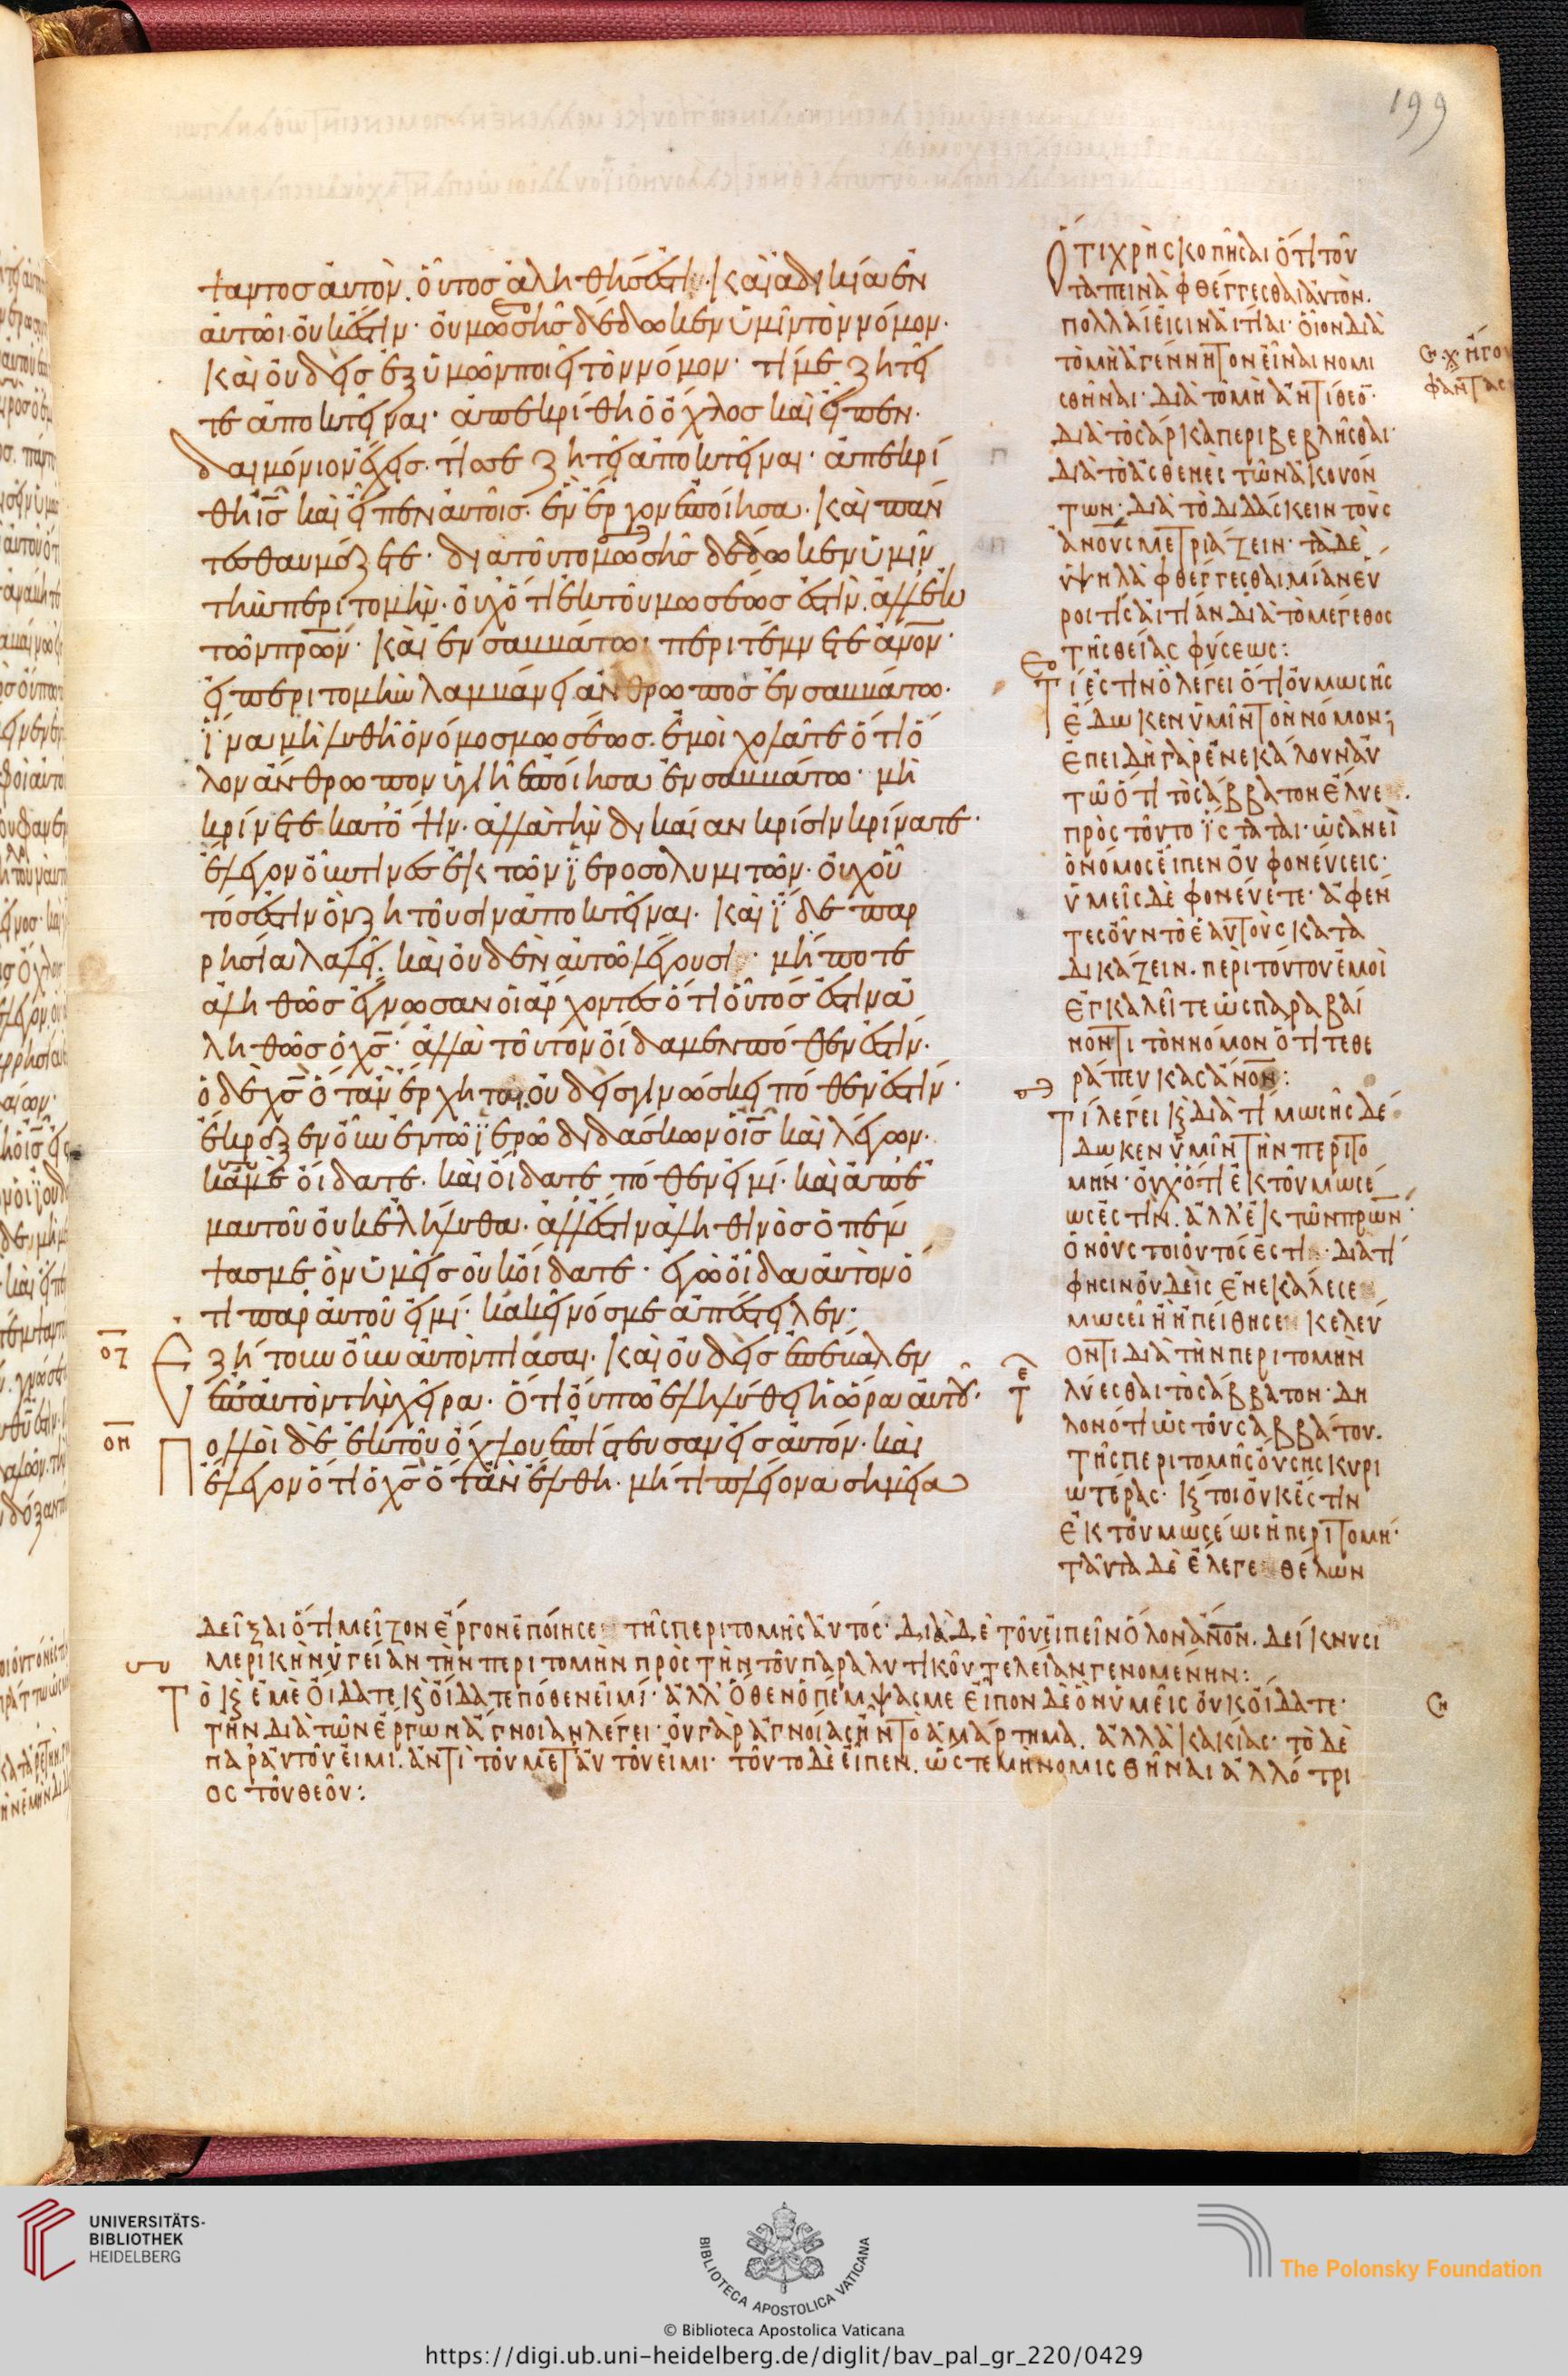 199
ψαντος αὐτὸν. οὗτος ἀληθής ἐστιν· καὶ ἀδικία ἐν
αὐτῶι οὐκ ἔστιν· οὐ μωσῆς δέδωκεν ὑμῖν τὸν νόμον·
καὶ οὐδεὶς ἐξ ὑμῶν ποιεῖ τὸν νόμον· τί με ζητεῖ
τε ἀποκτεῖναι· ἀπεκρίθη ὁ ὄχλος καὶ εἶπεν·
δαιμόνιον ἔχεις. τίς σε ζητεῖ ἀποκτεῖναι· ἀπεκρί
θη ις καὶ εἶπεν αὐτοῖς· ἓν ἔργον ἐποίησα. καὶ πάν
τες θαυμάζετε· διατοῦτο μωσῆς δέδωκεν ὑμῖν
τὴν περιτομὴν· οὐχ ὅτι ἐκ τοῦ μωσέως ἐστὶν. ἀλλ' ἐκ
τῶν πρων· καὶ ἐν σαββάτω περιτέμνετε ανον·
εἰ περιτομὴν λαμβάνει ἄνθρωπος ἐν σαββάτω.
ἵνα μὴ λυθῆ ὁ νόμος μωσέως. ἐμοὶ χολᾶτε ὅτι ὅ
λον ἄνθρωπον ὑγιῆ ἐποίησα ἐν σαββάτω· μὴ
κρίνετε κατ' ὄψιν· ἀλλὰ τὴν δικαίαν κρίσιν κρίνατε·
ἔλεγον οὖν τινες ἐκ τῶν ἱεροσολυμιτῶν· οὐχ οὗ
τός ἐστιν ὃν ζητοῦσιν ἀποκτεῖναι· καὶ ἴδε παρ
ρησία λαλεῖ. καὶ οὐδὲν αὐτῶ λέγουσι· μήποτε
ἀληθῶς ἔγνωσαν οἱ ἄρχοντες ὅτι οὗτός ἐστιν ἀ
ληθῶς ὁ χς· ἀλλὰ τοῦτον οἴδαμεν πόθεν ἐστίν·
ὁ δὲ χς ὅταν ἔρχηται οὐδεὶς γινώσκει πόθεν ἐστίν·
ἔκραξεν οὖν ἐν τῶ ἱερῶ διδάσκων ὁ ις καὶ λέγων·
κἀμὲ οἴδατε· καὶ οἴδατε πόθεν εἰμί· καὶ ἀπ' ἐ
μαυτοῦ οὐκ ἐλήλυθα· ἀλλ' ἔστιν ἀληθινὸς ὁ πέμ
ψας με ὃν ὑμεῖς οὐκ οἴδατε· ἐγὼ οἶδα αὐτὸν ὅ
τι παρ' αὐτοῦ εἰμί· κἀκεῖνός με ἀπέστειλεν·
οζ Εζήτουν οὖν αὐτὸν πιάσαι· καὶ οὐδεὶς ἐπέβαλεν
ἐπ' αὐτὸν τὴν χεῖρα· ὅτι οὔπω ἐληλύθει ἡ ὥρα αὐτοῦ·
οη Πολλοὶ δὲ ἐκ τοῦ ὄχλου ἐπίστευσαν εἰς αὐτόν· καὶ
ἔλεγον ὅτι ὁ χς ὅταν ἔλθη· μήτι πλείονα σημεῖα
Ὅτι χρὴ σκοπῆσαι ὅτι τοῦ
ταπεινὰ φθέγγεσθαι αὐτὸν.
πολλαί εἰσιν αἰτίαι· οἷον διὰ
τὸ μὴ ἀγέννητον εἶναι νομι
σθῆναι· διὰ τὸ μὴ ἀντίθεο·
διὰ τὸ σάρκα περιβεβλῆσθαι·
διὰ τὸ ἀσθενὲς τῶν ἀκουόν
των· διὰ τὸ διδάσκειν τοὺς
ανους μετριάζειν· τὰ δὲ
ὑψηλὰ φθέγγεσθαι μίαν εὕ
ροι τίς αἰτίαν διὰ τὸ μέγεθος
τῆς θείας φύσεως:
Τί ἐστιν ὃ λέγει ὅτι οὐ μωσῆς
ἔδωκεν ὑμῖν τὸν νόμον;
ἐπειδὴ γὰρ ἐνεκάλουν αὐ
τῶ ὅτι τὸ σάββατον ἔλυε.
πρὸς τοῦτο ἵσταται· ὡσανεὶ
ὁ νόμος εἶπεν οὐ φονεύσεις·
ὑμεῖς δὲ φονεύετε· ἀφέν
τες οὖν τὸ ἑαυτοὺς κατα
δικάζειν. περὶ τούτου ἐμοὶ
ἐγκαλεῖτε ὡς παραβαί
νοντι τὸν νόμον ὅτι τεθε
ράπευκας ανον:
Τί λέγει κ διατί μωσῆς δέ
δωκεν ὑμῖν τὴν περιτο
μήν· οὐχ ὅτι ἐκ τοῦ μωσέ
ως ἐστὶν. ἀλλ' ἐκ τῶν πρων·
ὁ νοῦς τοιοῦτός ἐστι· διατί
φησιν οὐδεὶς ἐνεκάλεσε
μωσεῖ ἢ ἠπείθησε κελεύ
οντι διὰ τὴν περιτομὴν
λύεσθαι τὸ σάββατον· δη
λονότι ὡς τοῦ σαββάτου.
τῆς περιτομῆς οὔσης κυρι
ωτέρας· κ τοι οὐκ ἔστιν
ἐκ τοῦ μωσέως ἡ περιτομή·
ταῦτα δὲ ἔλεγε θέλων
δεῖξαι ὅτι μεῖζον ἔργον ἐποίησε τῆς περιτομῆς αὐτός· διὰ δὲ τοῦ εἰπεῖν ὅλον ανον. δείκνυσι
μερικὴν ὑγείαν τὴν περιτομὴν πρὸς τὴν τοῦ παραλυτικοῦ τελείαν γενομένην:
Τὸ κ ἐμὲ οἴδατε κ οἴδατε πόθεν εἰμί· ἀλλ' ὅθεν ὁ πέμψας με εἶπον δὲ ὃν ὑμεῖς οὐκ οἴδατε·
τὴν διὰ τῶν ἔργων ἄγνοιαν λέγει· οὐ γὰρ ἀγνοίας ἦν τὸ ἁμάρτημα. ἀλλὰ κακίας· τὸ δὲ
παρ' αὐτοῦ εἰμι. ἀντὶ τοῦ μετ' αὐτοῦ εἰμι· τοῦτο δὲ εἶπεν. ὥστε μὴ νομισθῆναι ἀλλότρι
ος τοῦ θεοῦ:
UNIVERSITÄTS-
BIBLIOTHEK
HEIDELBERG
BIBLIOTECA APOSTOLICA VATICANA
The Polonsky Foundation
© Biblioteca Apostolica Vaticana
https://digi.ub.uni-heidelberg.de/diglit/bav_pal_gr_220/0429